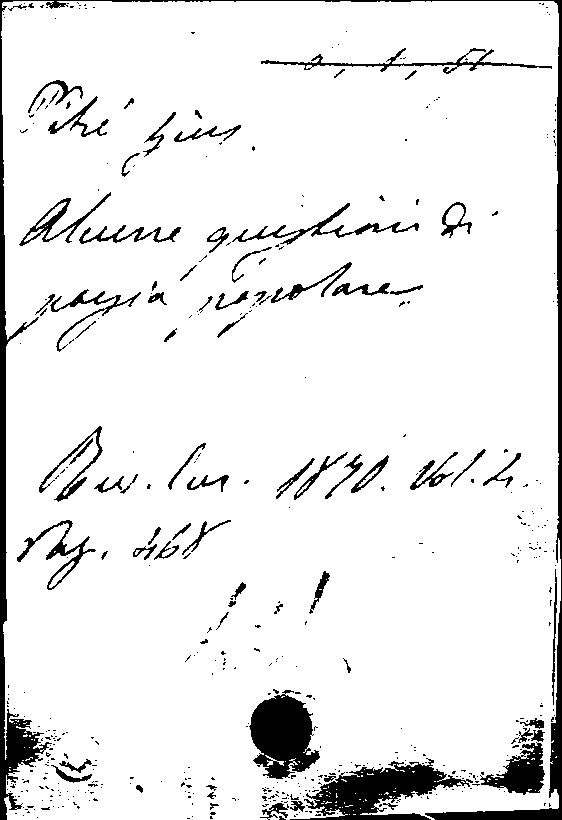 Pitrè Gius.
Alcune questioni di
poesia popolare
Riv. 1870. Vol. 2.
Pag. 468